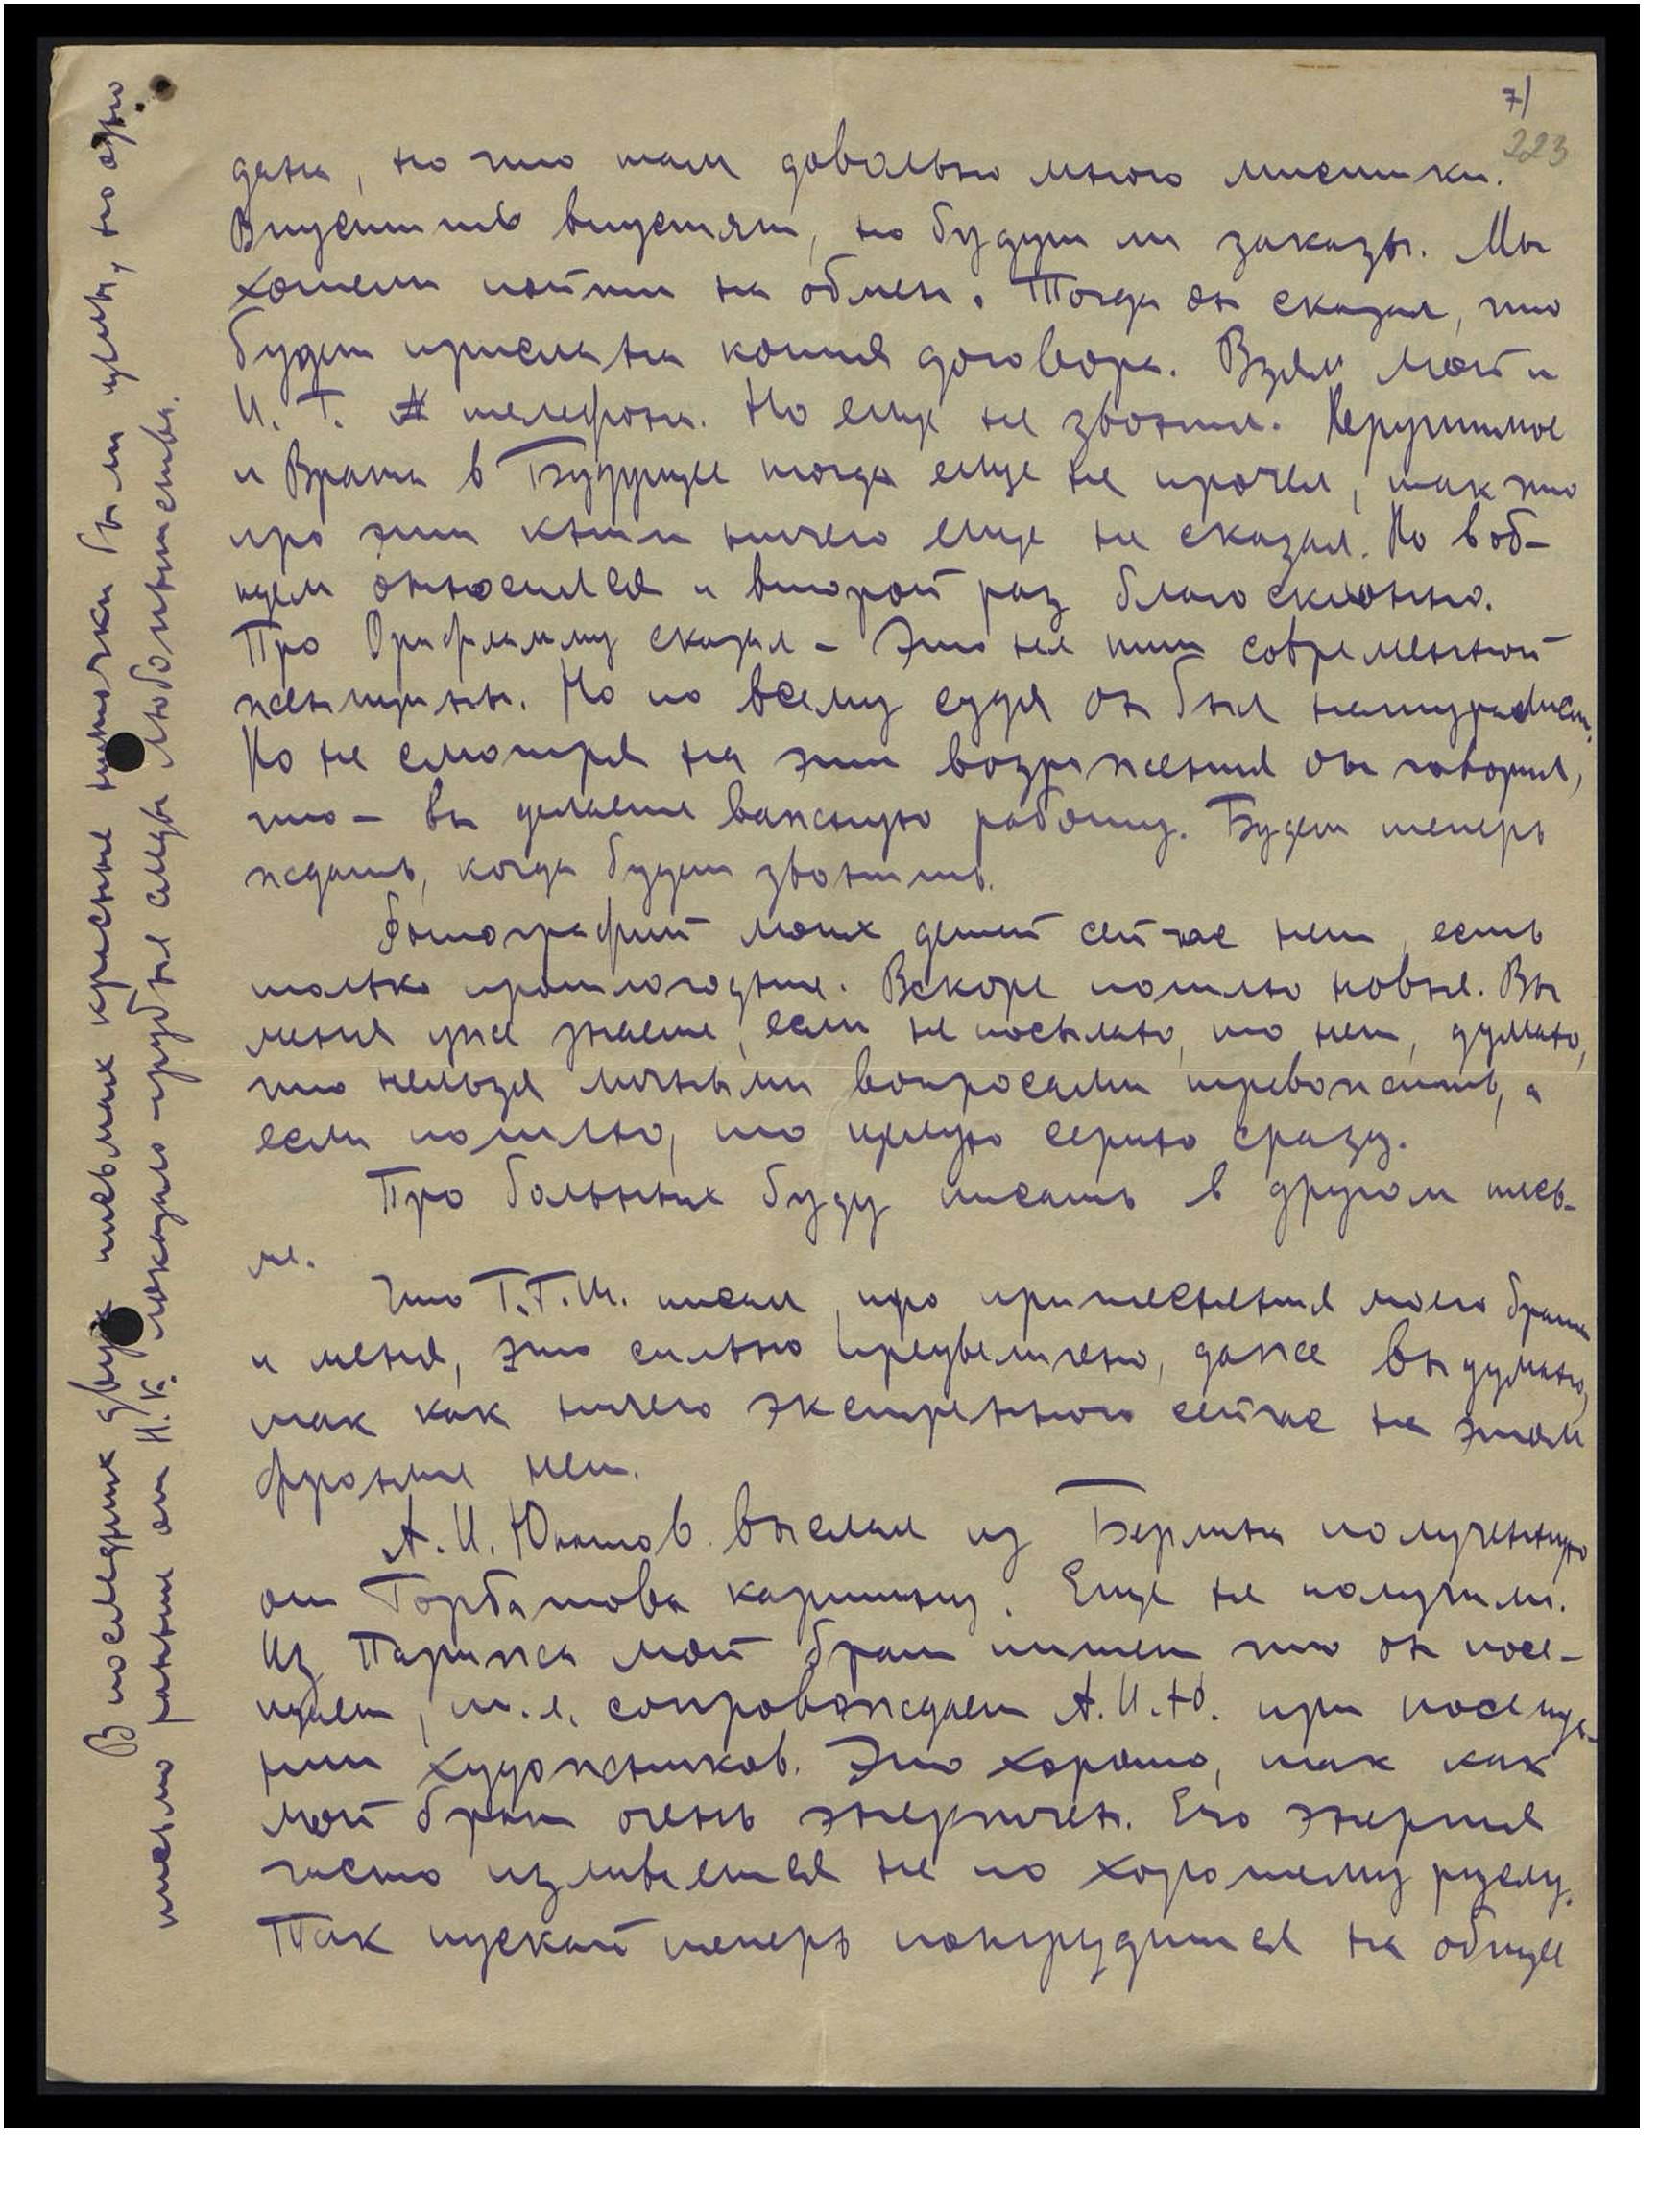 7)
223
дана, но что там довольно много мистики.
Впустить впустят, но будут ли заказы. Мы
хотели пойти на обмен. Тогда он сказал, что
будет прислана копия договора. Взял мой и
И. Г. телефоны. Но еще не звонил. Нерушимое
и Врата в Будущее тогда еще не прочел, так что
про эти книги ничего еще не сказал. Но в об-
щем относился и второй раз благосклонно.
Про Орифламму сказал – Это не тип современной
женщины. Но по всему судя он был
Но не смотря на эти возражения он говорил,
что – вы делаете важную работу. Будем теперь
ждать, когда будет звонить.
Фотографий моих детей сейчас нет, есть
только прошлогодние. Вскоре пошлю новые. Вы
меня уже знаете, если не посылаю, то нет, думаю,
что нельзя личными вопросами тревожить, а
если пошлю, то целую серию сразу.
Про больных буду писать в другом пись-
ме.
Что Г.Г.Ш. писал про притеснения моего брата
и меня, это сильно преувеличено, даже выдумано,
так как ничего экстренного сейчас на этом
фронте нет.
А. И. Юпатов выслал из Берлина полученную
от Горбатова картину. Еще не получили.
Из Парижа мой брат пишет что он посе-
щает, т.е. сопровождает А.И.Ю. при посеще-
нии художников. Это хорошо, так как
мой брат очень энергичен. Его энергия
часто изливается не по хорошему руслу.
Так пускай теперь потрудится на общее
В последних двух письмах красные ниточки были целы, но одно
письмо раньше от Н.К. показало грубые следы любопытства.